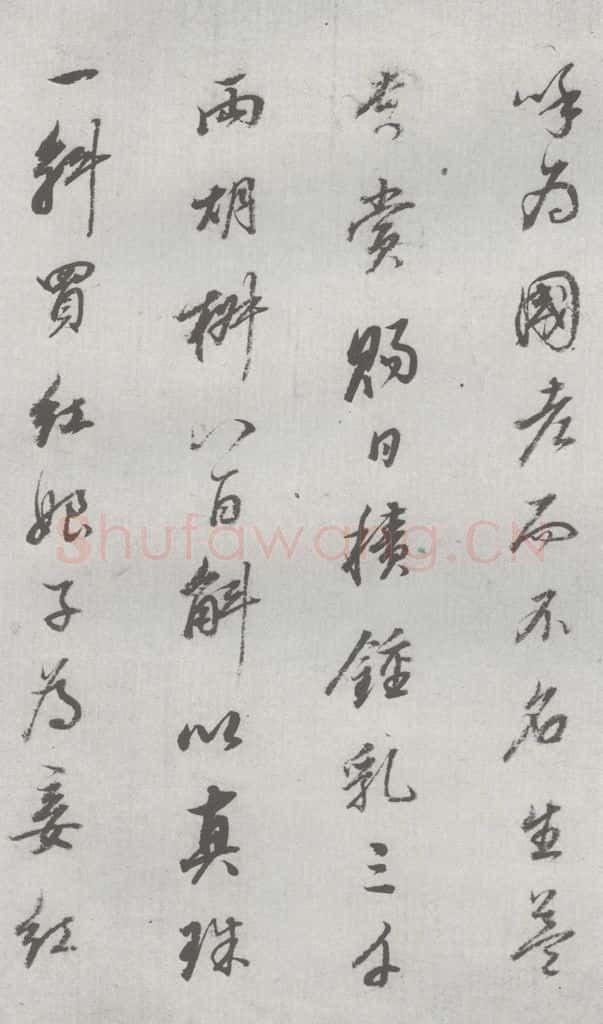 呼为國老而不名生益
貴賞賜日積鍾乳三千
兩胡椒八百斛以真珠
一斛買紅娘子為妾紅
Shufawang.CN